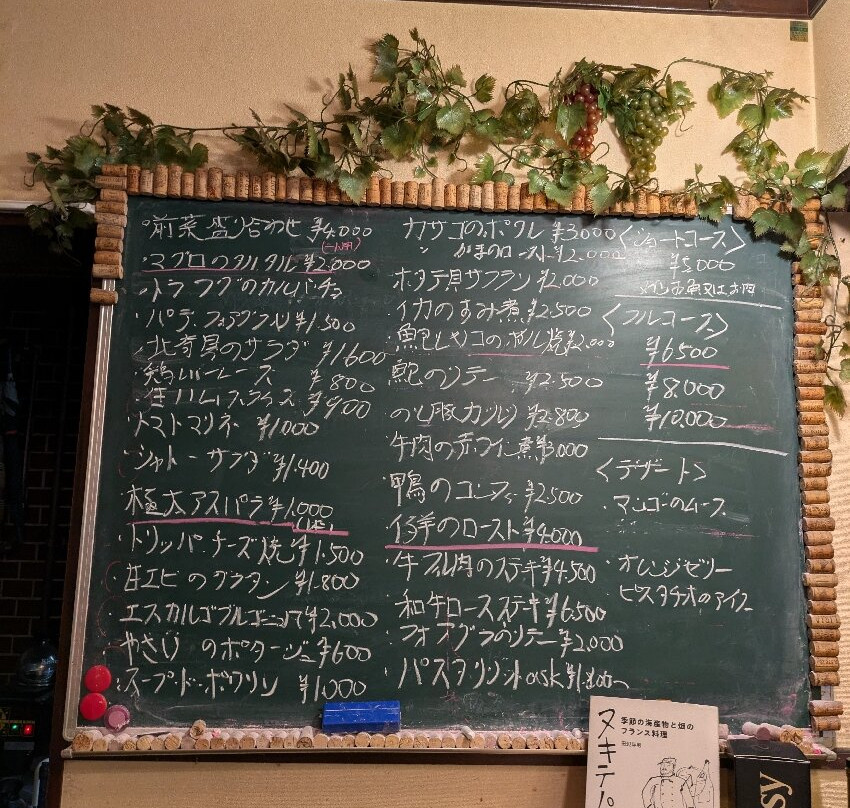 前菜盛り合わせ ¥4,000
(一人用)
・マグロのタルタル ¥2,000
・トラフグのカルパッチョ
・パテ・フォアグラ入り ¥1,500
・北寄貝のサラダ ¥1600
・鶏レバームース ¥800
・生ハムスライス ¥900
トマトマリネ ¥1000
・シャトーサラダ ¥1,400
極太アスパラ ¥1,000
(1本)
・トリッパ・チーズ焼 ¥1,500
・甘エビのグラタン ¥1,800
・エスカルゴブルゴーニュ ¥2,000
・やさい のポタージュ ¥600
・スープ・ド・ポワソン ¥1,000
カサゴのポワレ ¥3000
〃 かまのロースト ¥2,000
ホタテ貝サフラン ¥2,000
・イカのすみ煮 ¥2,500
・ ¥2,000
・鮑のソテー ¥2,500
のし豚カツレツ ¥2,800
牛肉の赤ワイン煮 ¥3,000
・鴨のコンフィー ¥2,500
・仔羊のロースト ¥4,000
・牛フィレ肉のステーキ ¥4,500
・和牛ロースステーキ ¥6,500
・フォアグラのソテー ¥2,000
・パスタ・リゾット ask ¥1,800〜
〈ショートコース〉
¥5,000
メインお魚又はお肉
〈フルコース〉
¥6500
¥8,000
¥10,000
〈デザート〉
・マンゴーのムース
・オレンジゼリー
ピスタチオのアイス
季節の海産物と畑の
フランス料理
ヌキテパ
sy